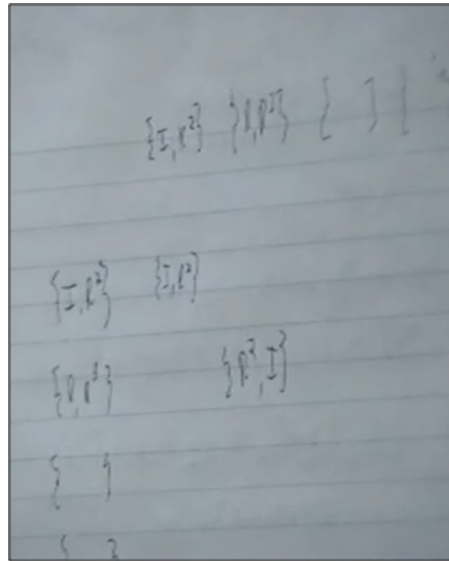 {I, R²} {R, R³} { } {
{I, R²} {I, R²}
{R, R³} {R², I}
{ }
{ }